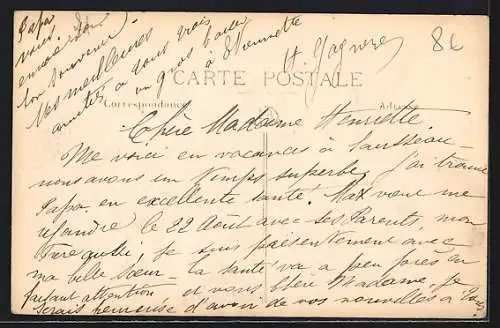 86
CARTE POSTALE
Correspondance
Chère Madame Henriette
Me voici en vacances à
nous avons un temps superbe, j'ai trouvé
Papa en excellente santé. Max vient me
rejoindre le 22 Août avec ses Parents, mon
je suis présentement avec
ma belle Sœur - la santé va à peu près en
faisant attention et vous chère Madame, je
serais heureuse d'avoir de vos nouvelles à
Papa
vous
envoie son
bon souvenir.
Mes meilleures
amitiés à vous
un gros baiser
à Etiennette